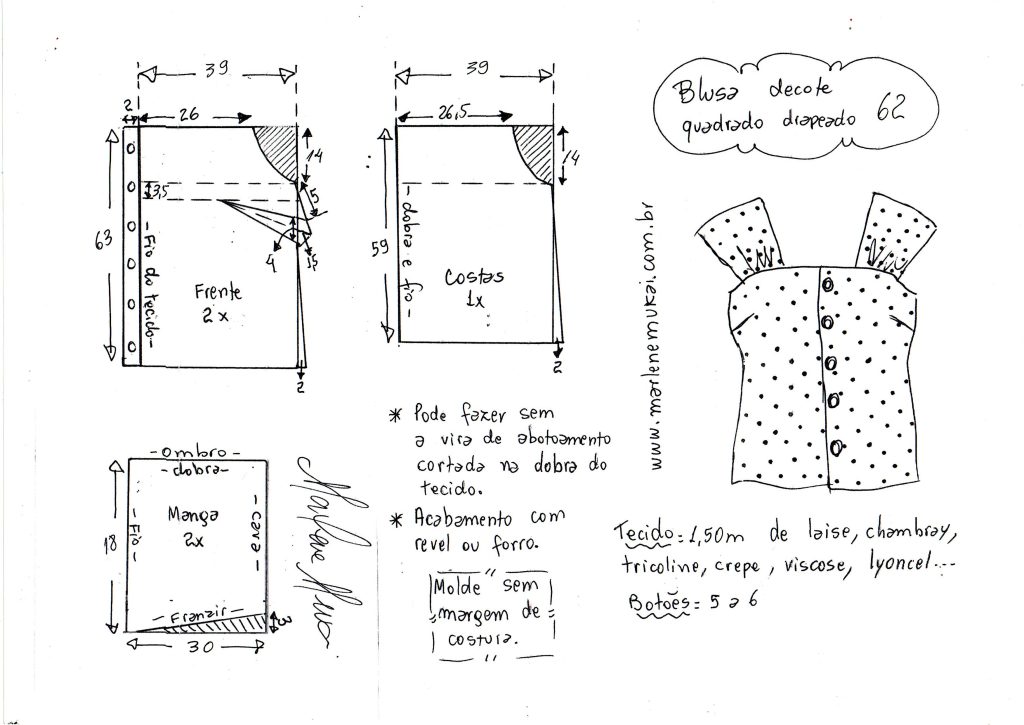 Blusa decote
quadrado drapeado 62
39
2
26
14
3,5
5
63
- Fio do tecido -
4
Frente
2x
2
39
26,5
14
59
- dobra e fio -
Costas
1x
2
www.marlenemukai.com.br
- Ombro -
- dobra -
18
Fio -
Manga
2x
- cava -
- Franzir -
3
30
* Pode fazer sem
a vira de abotoamento
cortada na dobra do
tecido.
* Acabamento com
revel ou forro.
Molde sem
margem de
costura.
Tecido = 1,50m de laise, chambray,
tricoline, crepe, viscose, lyoncel...
Botões = 5 a 6